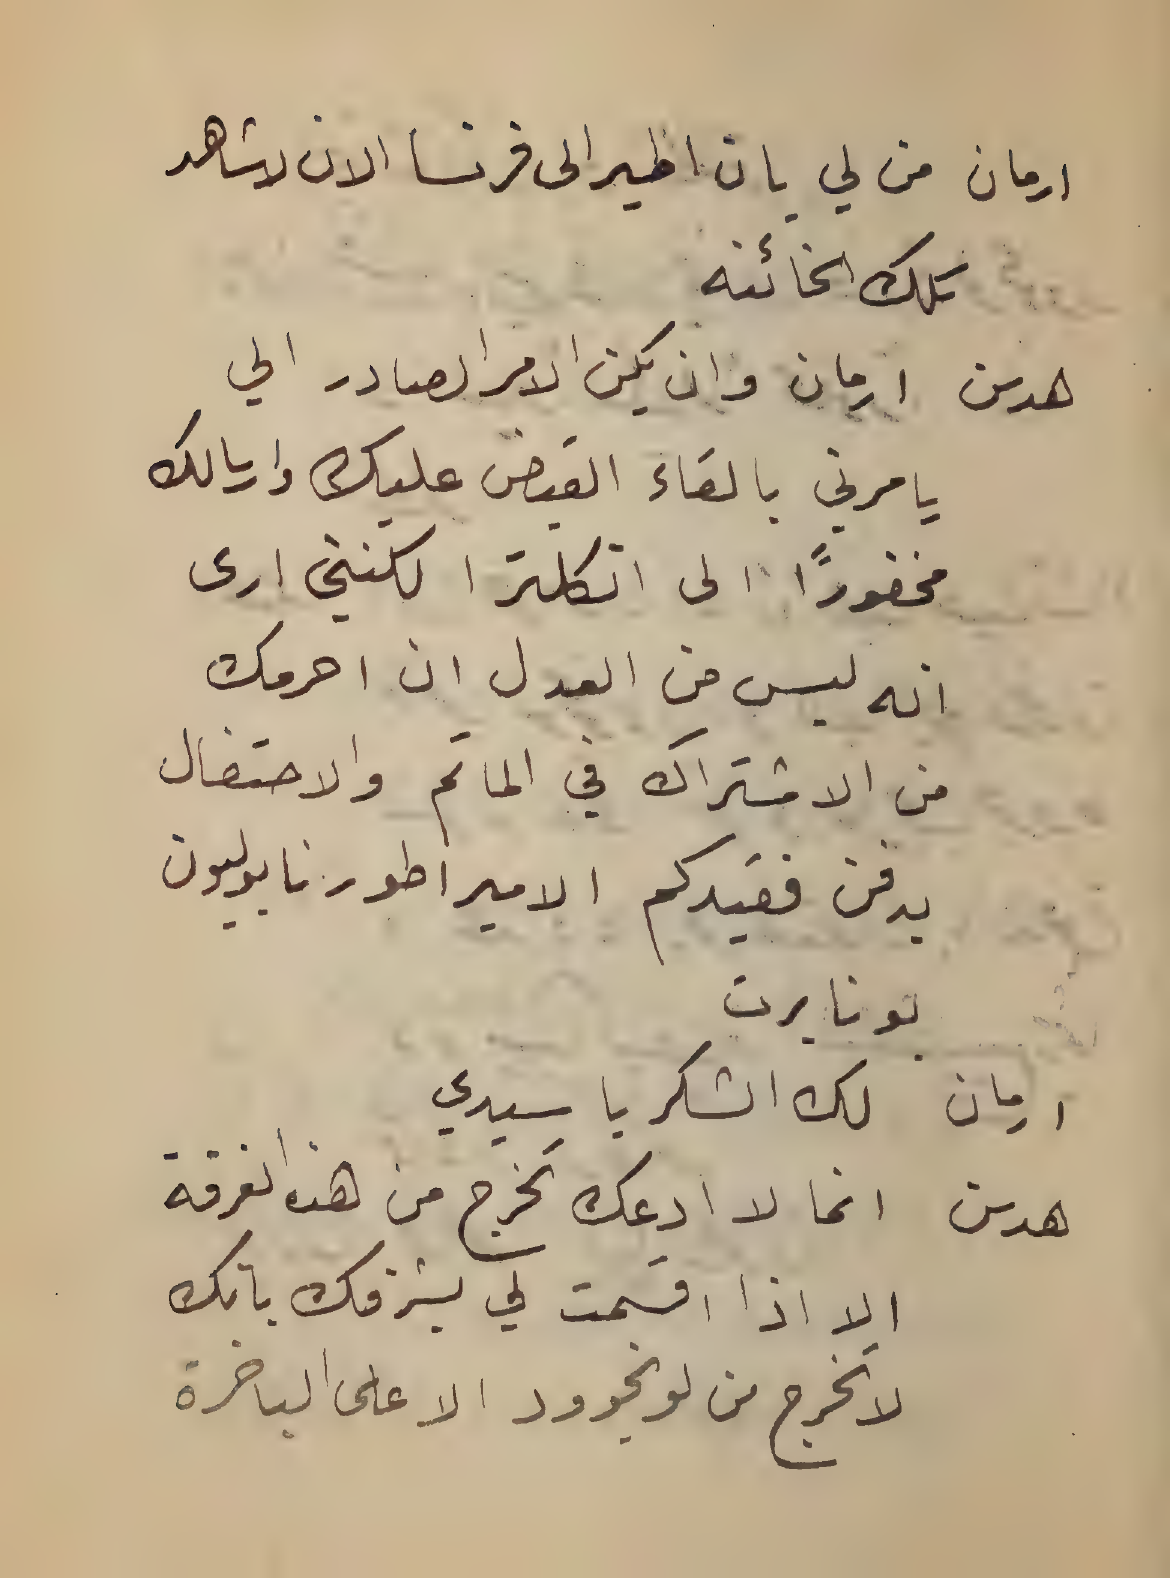 ارمان من لي بان اطير الى فرنسا الان لاشاهد
تلك الخائنه
هدسن ارمان وان يكن الامر الصادر الي
يامرني بالقاء القبض عليك وارسالك
مخفورًا الى انكلترا لكنني ارى
انه ليس من العدل ان احرمك
من الاشتراك في الماتم والاحتفال
بدفن فقيدكم الامبراطور نابوليون
بونابرت
ارمان لك الشكر يا سيدي
هدسن انما لا ادعك تخرج من هذه الغرفة
الا اذا اقسمت لي بشرفك بانك
لا تخرج من لونجوود الا على الباخرة